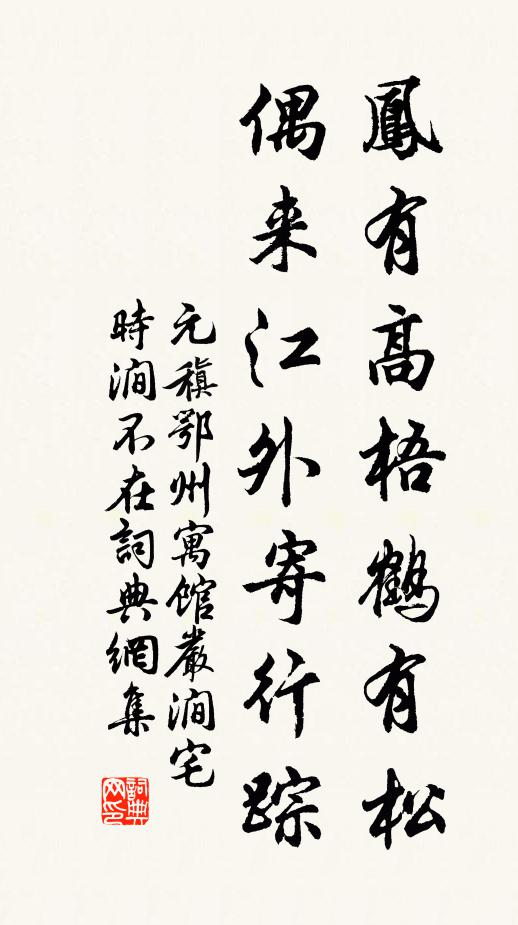 鳳有高梧鶴有松
偶来江外寄行踪
元稹鄂州寓館嚴澗宅
時澗不在詞典網集
詞典
网印